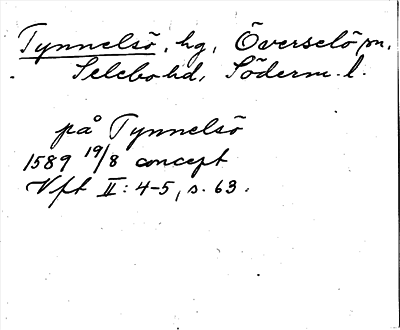 Tynnelsö, hg, Överselö sn,
Selebo hd, Söderm. l.
på Tynnelsö
1589 19/8 concept
Vft II: 4-5, s. 63.